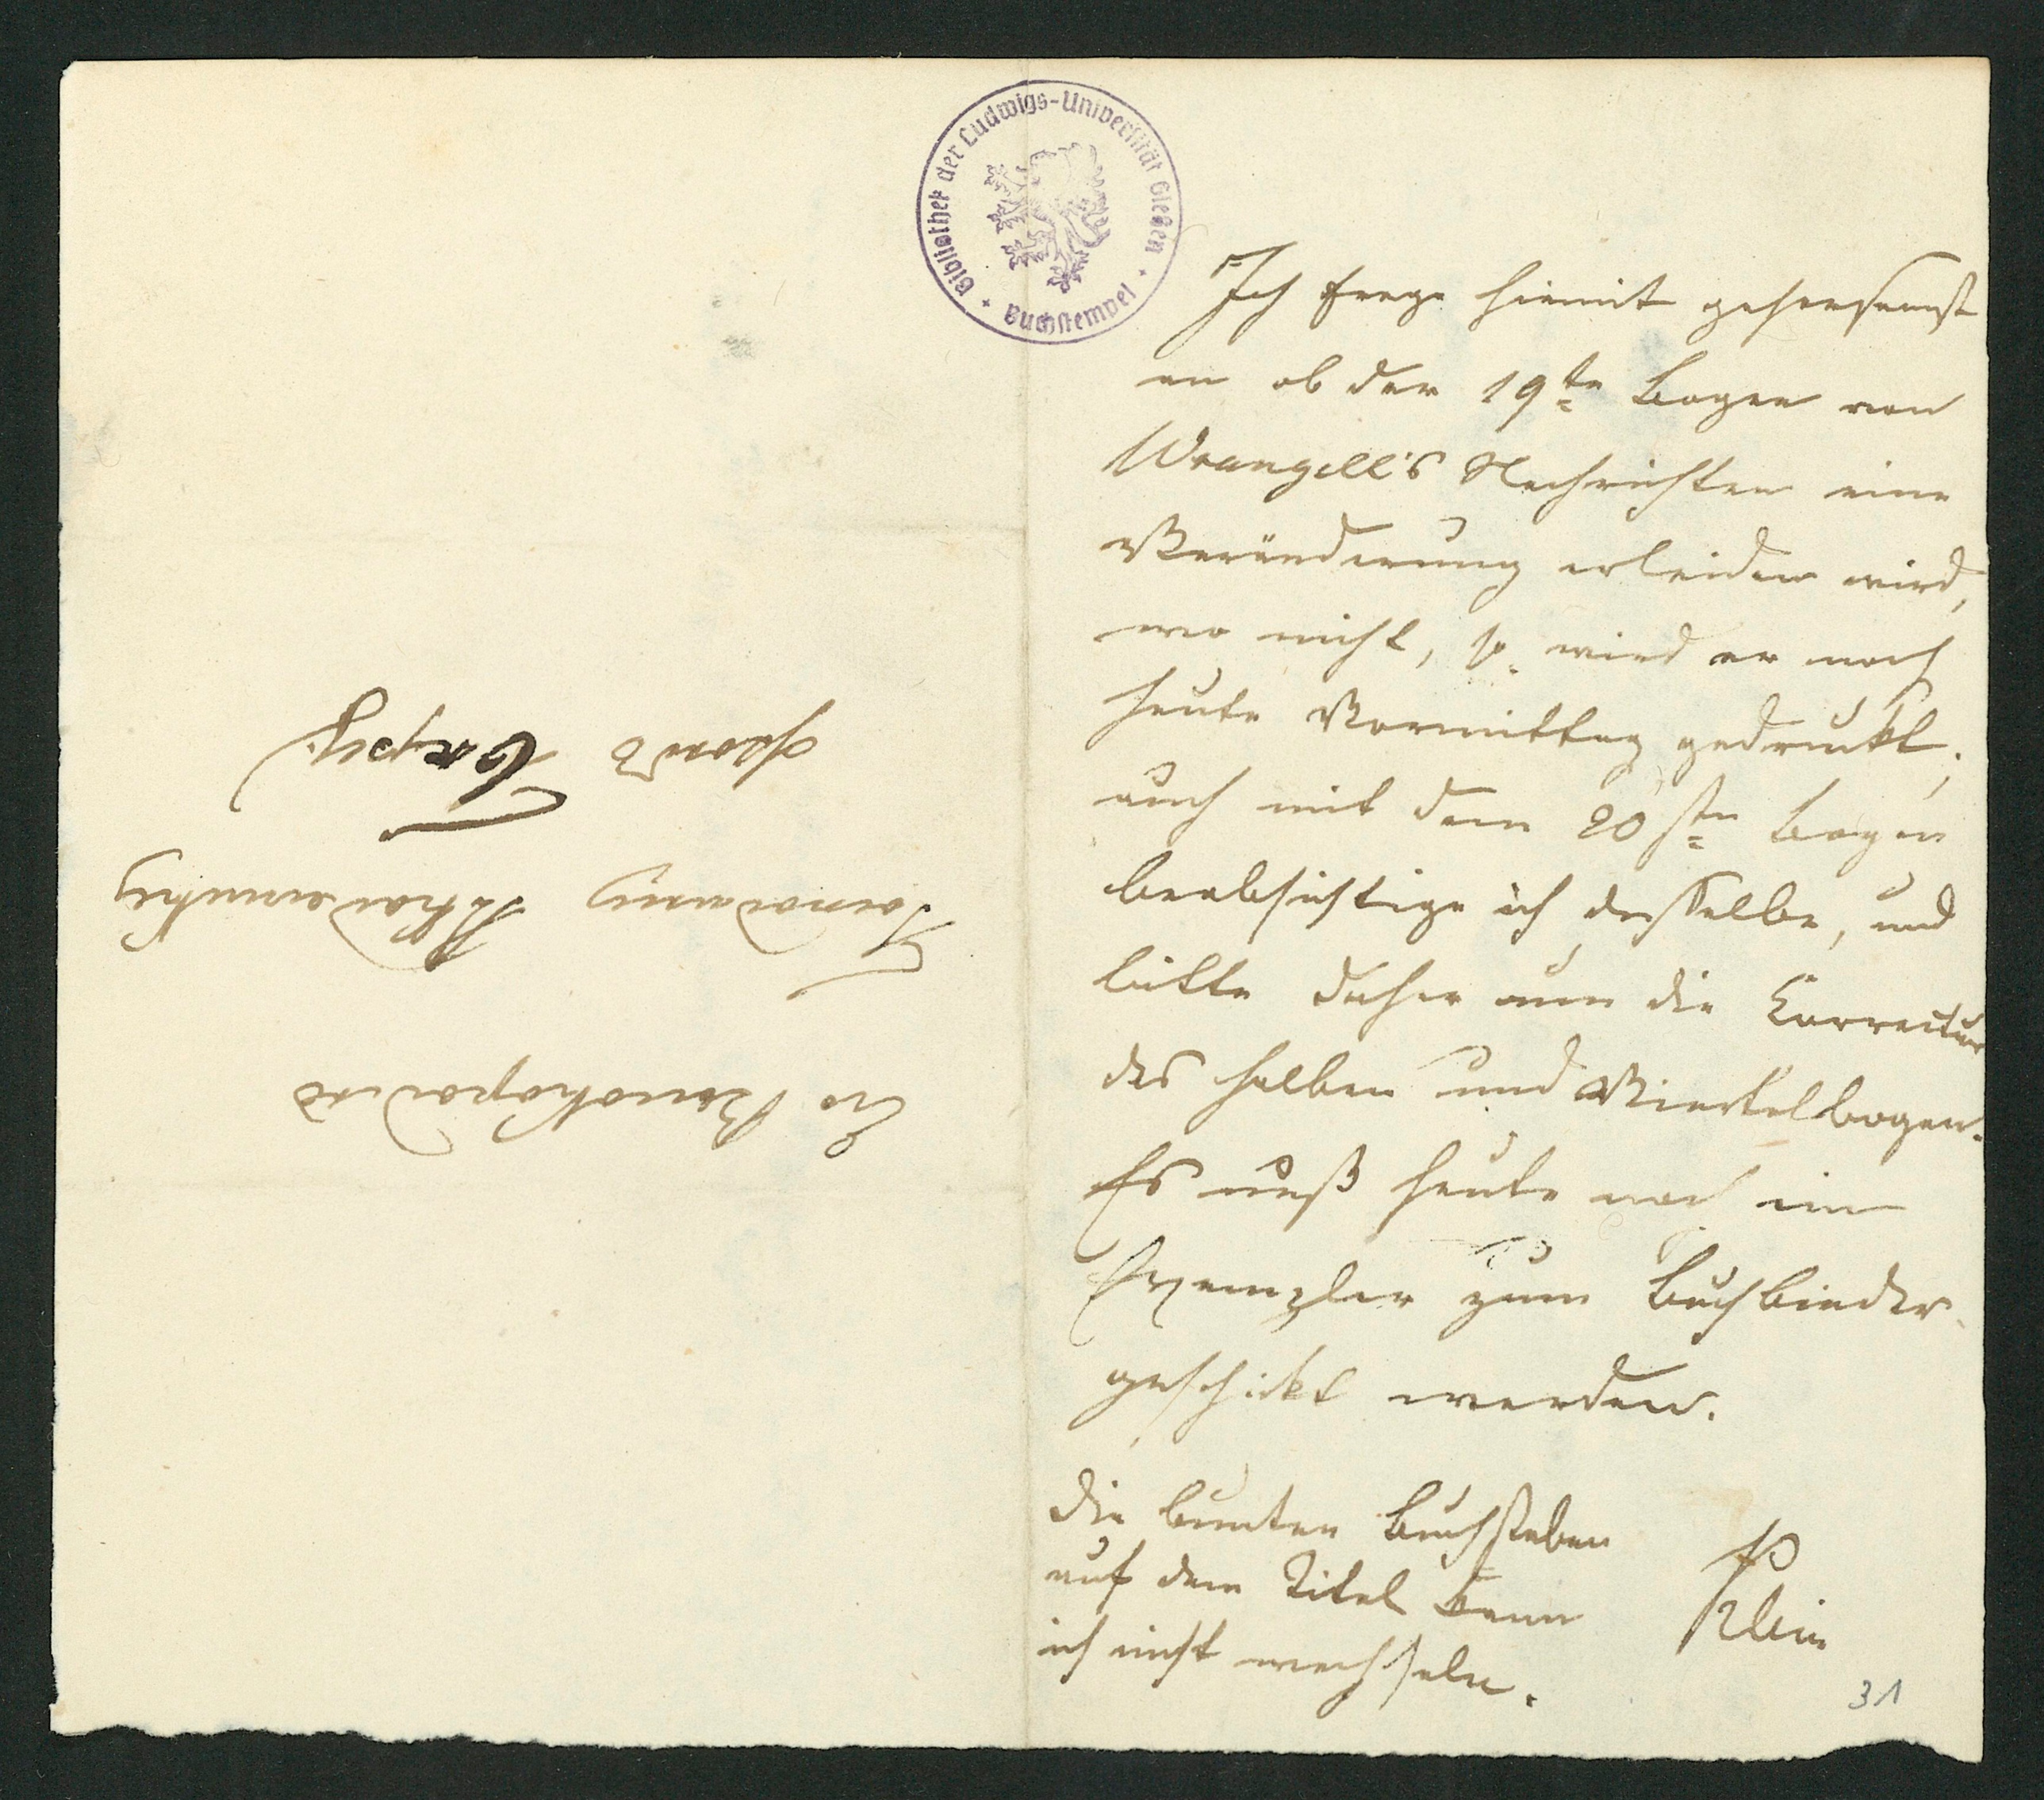 Bibliothek der Ludwigs-Universität Gießen
Buchstempel
Ich frage hiemit gehorsamst
an ob der 19te Bogen von
Wrangell's Nachrichten eine
Veränderung erleiden wird,
wo nicht, so wird er noch
heute Vormittag gedruckt;
auch mit dem 20sten Bogen
beabsichtige ich dasselbe, und
bitte daher um die Correctur
des halben und Viertelbogen.
Es muß heute noch ein
Exemplar zum Buchbinder
geschickt werden.
Die bunten Buchstaben
auf dem Titel kann
ich nicht wechseln.
Klein
31
Его Высокородію
Господину Академику
фонъ Бэру.